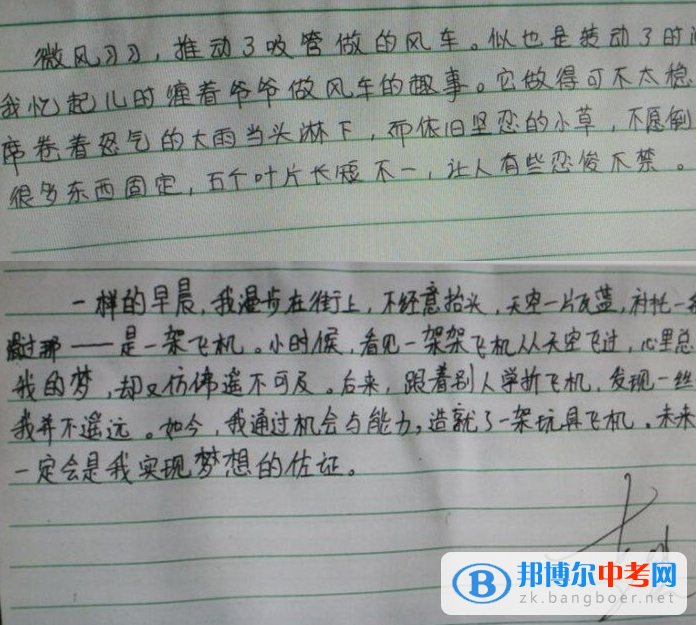 微风习习，推动了吸管做的风车。似也是转动了时
我忆起儿时缠着爷爷做风车的趣事。它做得可不太稳
席卷着怒气的大雨当头淋下，而依旧坚忍的小草，不愿倒
很多东西固定，五个叶片长短不一，让人有些忍俊不禁。
一样的早晨，我漫步在街上，不经意抬头，天空一片瓦蓝，衬托一
那——是一架飞机。小时候，看见一架架飞机从天空飞过，心里总
我的梦，却又仿佛遥不可及。后来，跟着别人学折飞机，发现一丝
我并不遥远。如今，我通过机会与能力，造就了一架玩具飞机。未来
一定会是我实现梦想的佐证。
邦博尔中考网
zk.bangboer.net